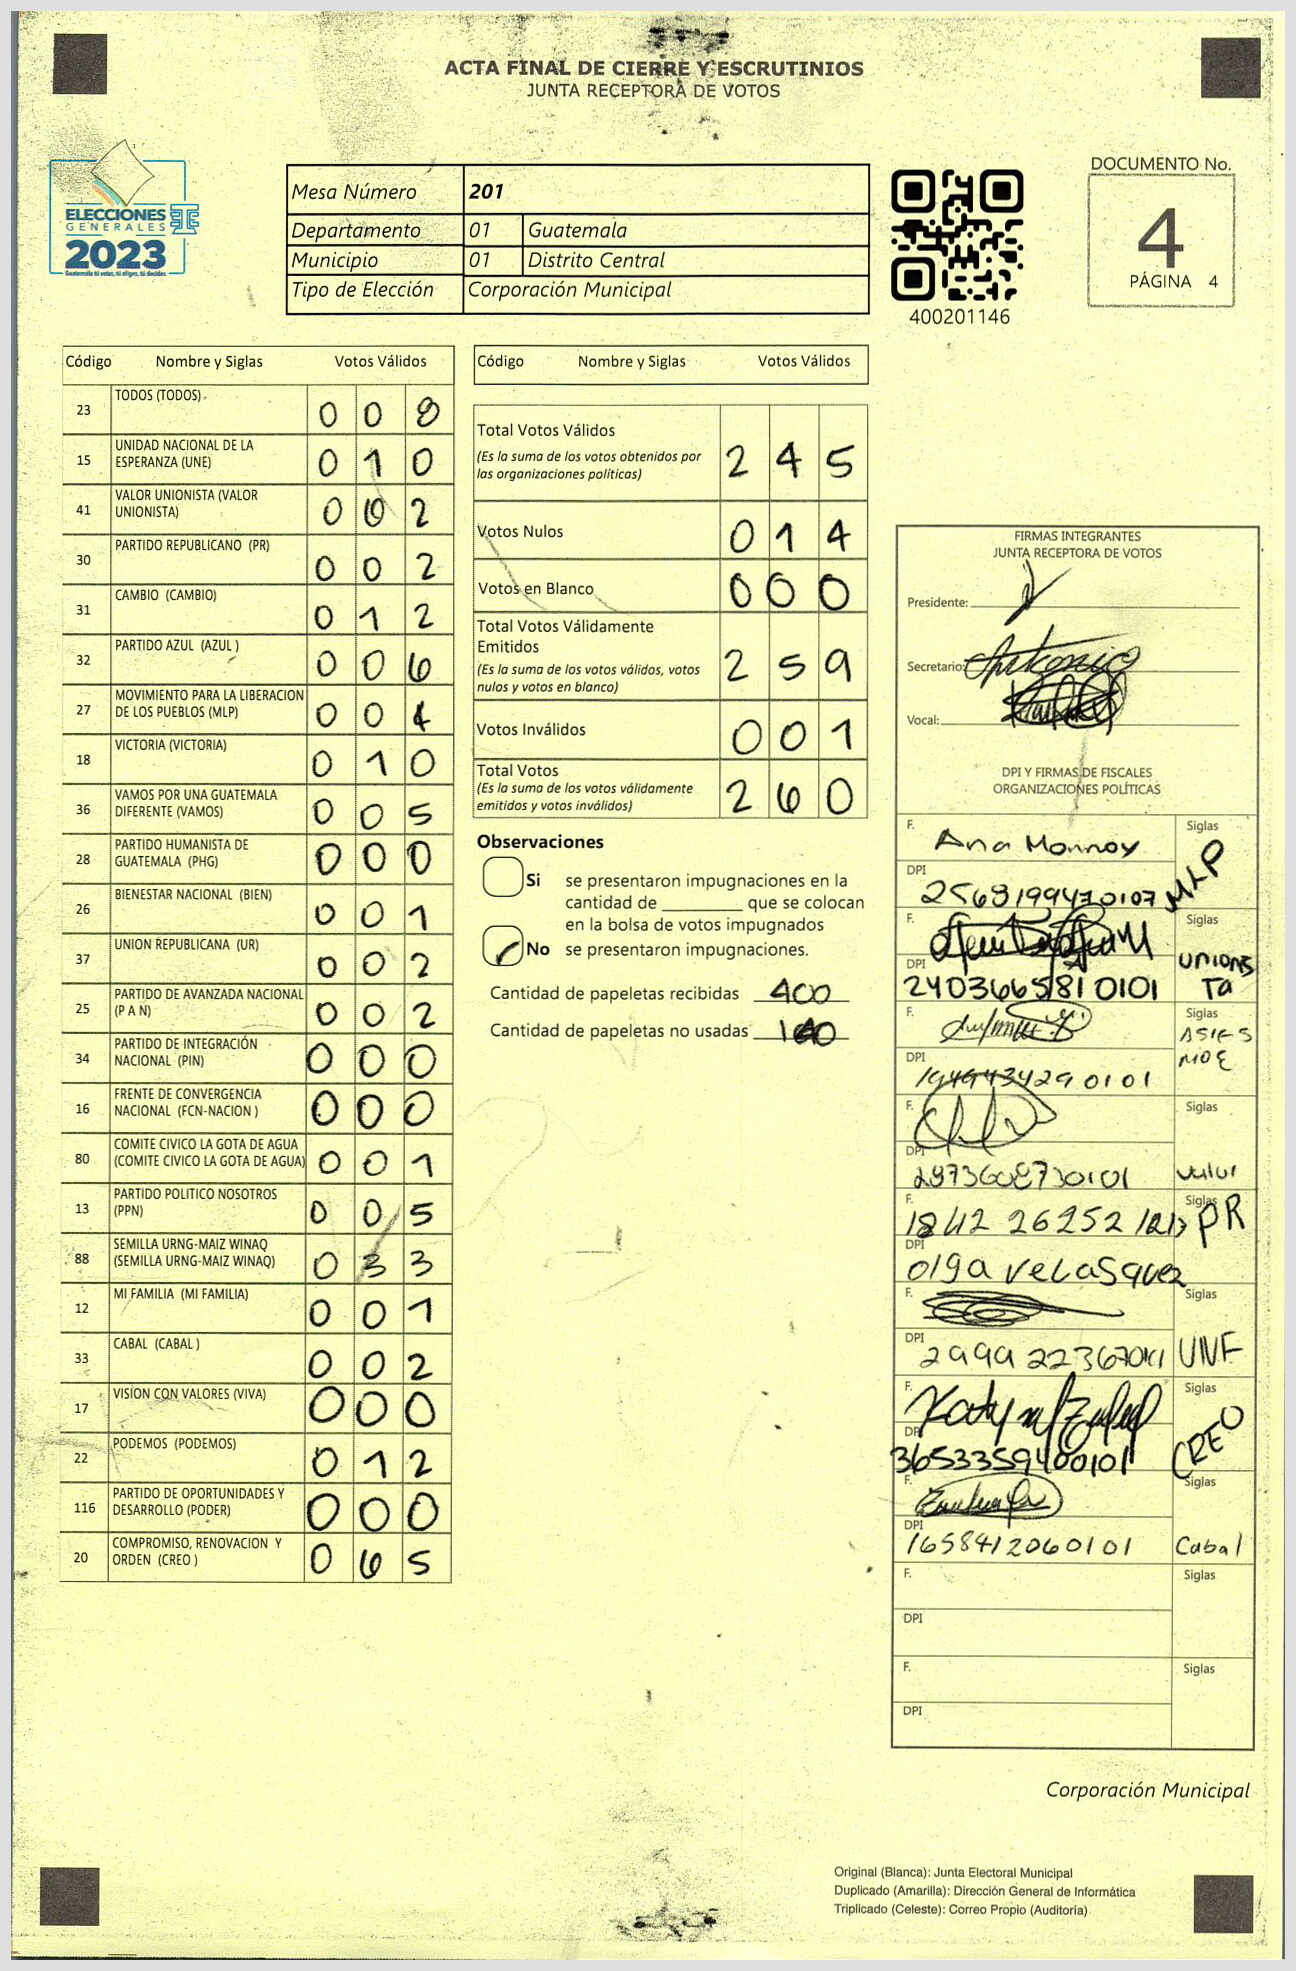 ACTA FINAL DE CIERRE Y ESCRUTINIOS
JUNTA RECEPTORA DE VOTOS
ELECCIONES
GENERALES
2023
Guatemala tú votas, tú eliges, tú decides
Mesa Número 201
Departamento 01 Guatemala
Municipio 01 Distrito Central
Tipo de Elección Corporación Municipal
400201146
DOCUMENTO No.
4
PÁGINA 4
Código Nombre y Siglas Votos Válidos
23 TODOS (TODOS) 0 0 8
15 UNIDAD NACIONAL DE LA
ESPERANZA (UNE) 0 1 0
41 VALOR UNIONISTA (VALOR
UNIONISTA) 0 0 2
30 PARTIDO REPUBLICANO (PR) 0 0 2
31 CAMBIO (CAMBIO) 0 1 2
32 PARTIDO AZUL (AZUL ) 0 0 6
27 MOVIMIENTO PARA LA LIBERACION
DE LOS PUEBLOS (MLP) 0 0 4
18 VICTORIA (VICTORIA) 0 1 0
36 VAMOS POR UNA GUATEMALA
DIFERENTE (VAMOS) 0 0 5
28 PARTIDO HUMANISTA DE
GUATEMALA (PHG) 0 0 0
26 BIENESTAR NACIONAL (BIEN) 0 0 1
37 UNION REPUBLICANA (UR) 0 0 2
25 PARTIDO DE AVANZADA NACIONAL
(P A N) 0 0 2
34 PARTIDO DE INTEGRACIÓN
NACIONAL (PIN) 0 0 0
16 FRENTE DE CONVERGENCIA
NACIONAL (FCN-NACION ) 0 0 0
80 COMITE CIVICO LA GOTA DE AGUA
(COMITE CIVICO LA GOTA DE AGUA) 0 0 1
13 PARTIDO POLITICO NOSOTROS
(PPN) 0 0 5
88 SEMILLA URNG-MAIZ WINAQ
(SEMILLA URNG-MAIZ WINAQ) 0 3 3
12 MI FAMILIA (MI FAMILIA) 0 0 1
33 CABAL (CABAL ) 0 0 2
17 VISION CON VALORES (VIVA) 0 0 0
22 PODEMOS (PODEMOS) 0 1 2
116 PARTIDO DE OPORTUNIDADES Y
DESARROLLO (PODER) 0 0 0
20 COMPROMISO, RENOVACION Y
ORDEN (CREO ) 0 6 5
Código Nombre y Siglas Votos Válidos
Total Votos Válidos
(Es la suma de los votos obtenidos por
las organizaciones políticas) 2 4 5
Votos Nulos 0 1 4
Votos en Blanco 0 0 0
Total Votos Válidamente
Emitidos
(Es la suma de los votos válidos, votos
nulos y votos en blanco) 2 5 9
Votos Inválidos 0 0 1
Total Votos
(Es la suma de los votos válidamente
emitidos y votos inválidos) 2 6 0
Observaciones
Si se presentaron impugnaciones en la
cantidad de ________ que se colocan
en la bolsa de votos impugnados
No se presentaron impugnaciones.
Cantidad de papeletas recibidas 400
Cantidad de papeletas no usadas
FIRMAS INTEGRANTES
JUNTA RECEPTORA DE VOTOS
Presidente:
Secretario: Antonio
Vocal:
DPI Y FIRMAS DE FISCALES
ORGANIZACIONES POLÍTICAS
F. Ana Monroy Siglas
DPI 2568199470107 MLP
F. Siglas
DPI 2403665810101 UNIONIS
Ta
F. Siglas
DPI 1949434290101 ASIES
MOE
F. Siglas
DPI 2873608730101 Valor
F. 1842 26252 Siglas PR
DPI Olga Velasquez
F. Siglas
DPI UNE
F. Siglas
DPI 3653359400101 CREO
F. Siglas
DPI 1658412060101 Cabal
F. Siglas
DPI
F. Siglas
DPI
Corporación Municipal
Original (Blanca): Junta Electoral Municipal
Duplicado (Amarilla): Dirección General de Informática
Triplicado (Celeste): Correo Propio (Auditoría)